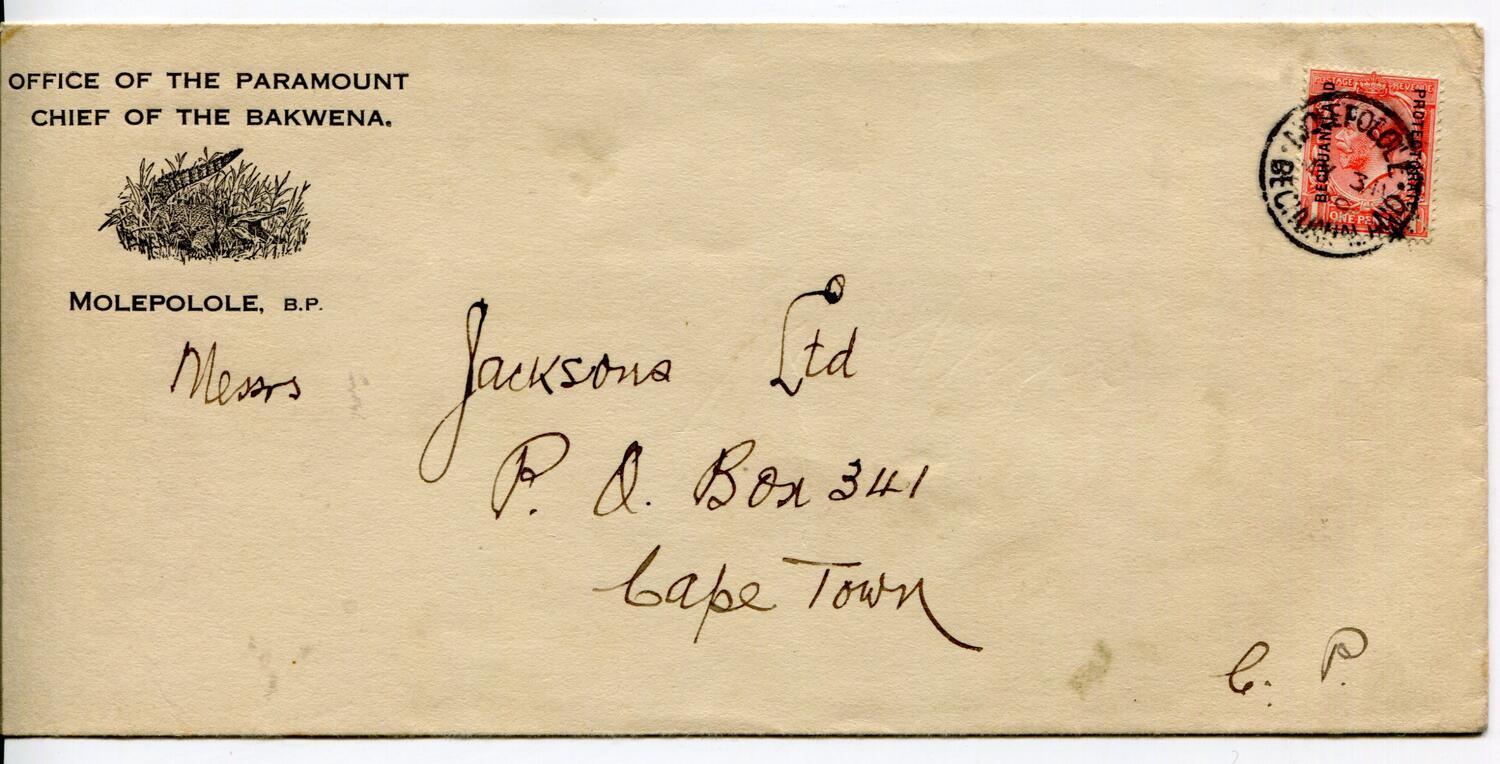 OFFICE OF THE PARAMOUNT
CHIEF OF THE BAKWENA.
MOLEPOLOLE, B.P.
POSTAGE REVENUE
BECHUANALAND
PROTECTORATE
ONE PENNY
MOLEPOLOLE
BECHUANALAND
Messrs
Jacksons Ltd
P. O. Box 341
Cape Town
C. P.